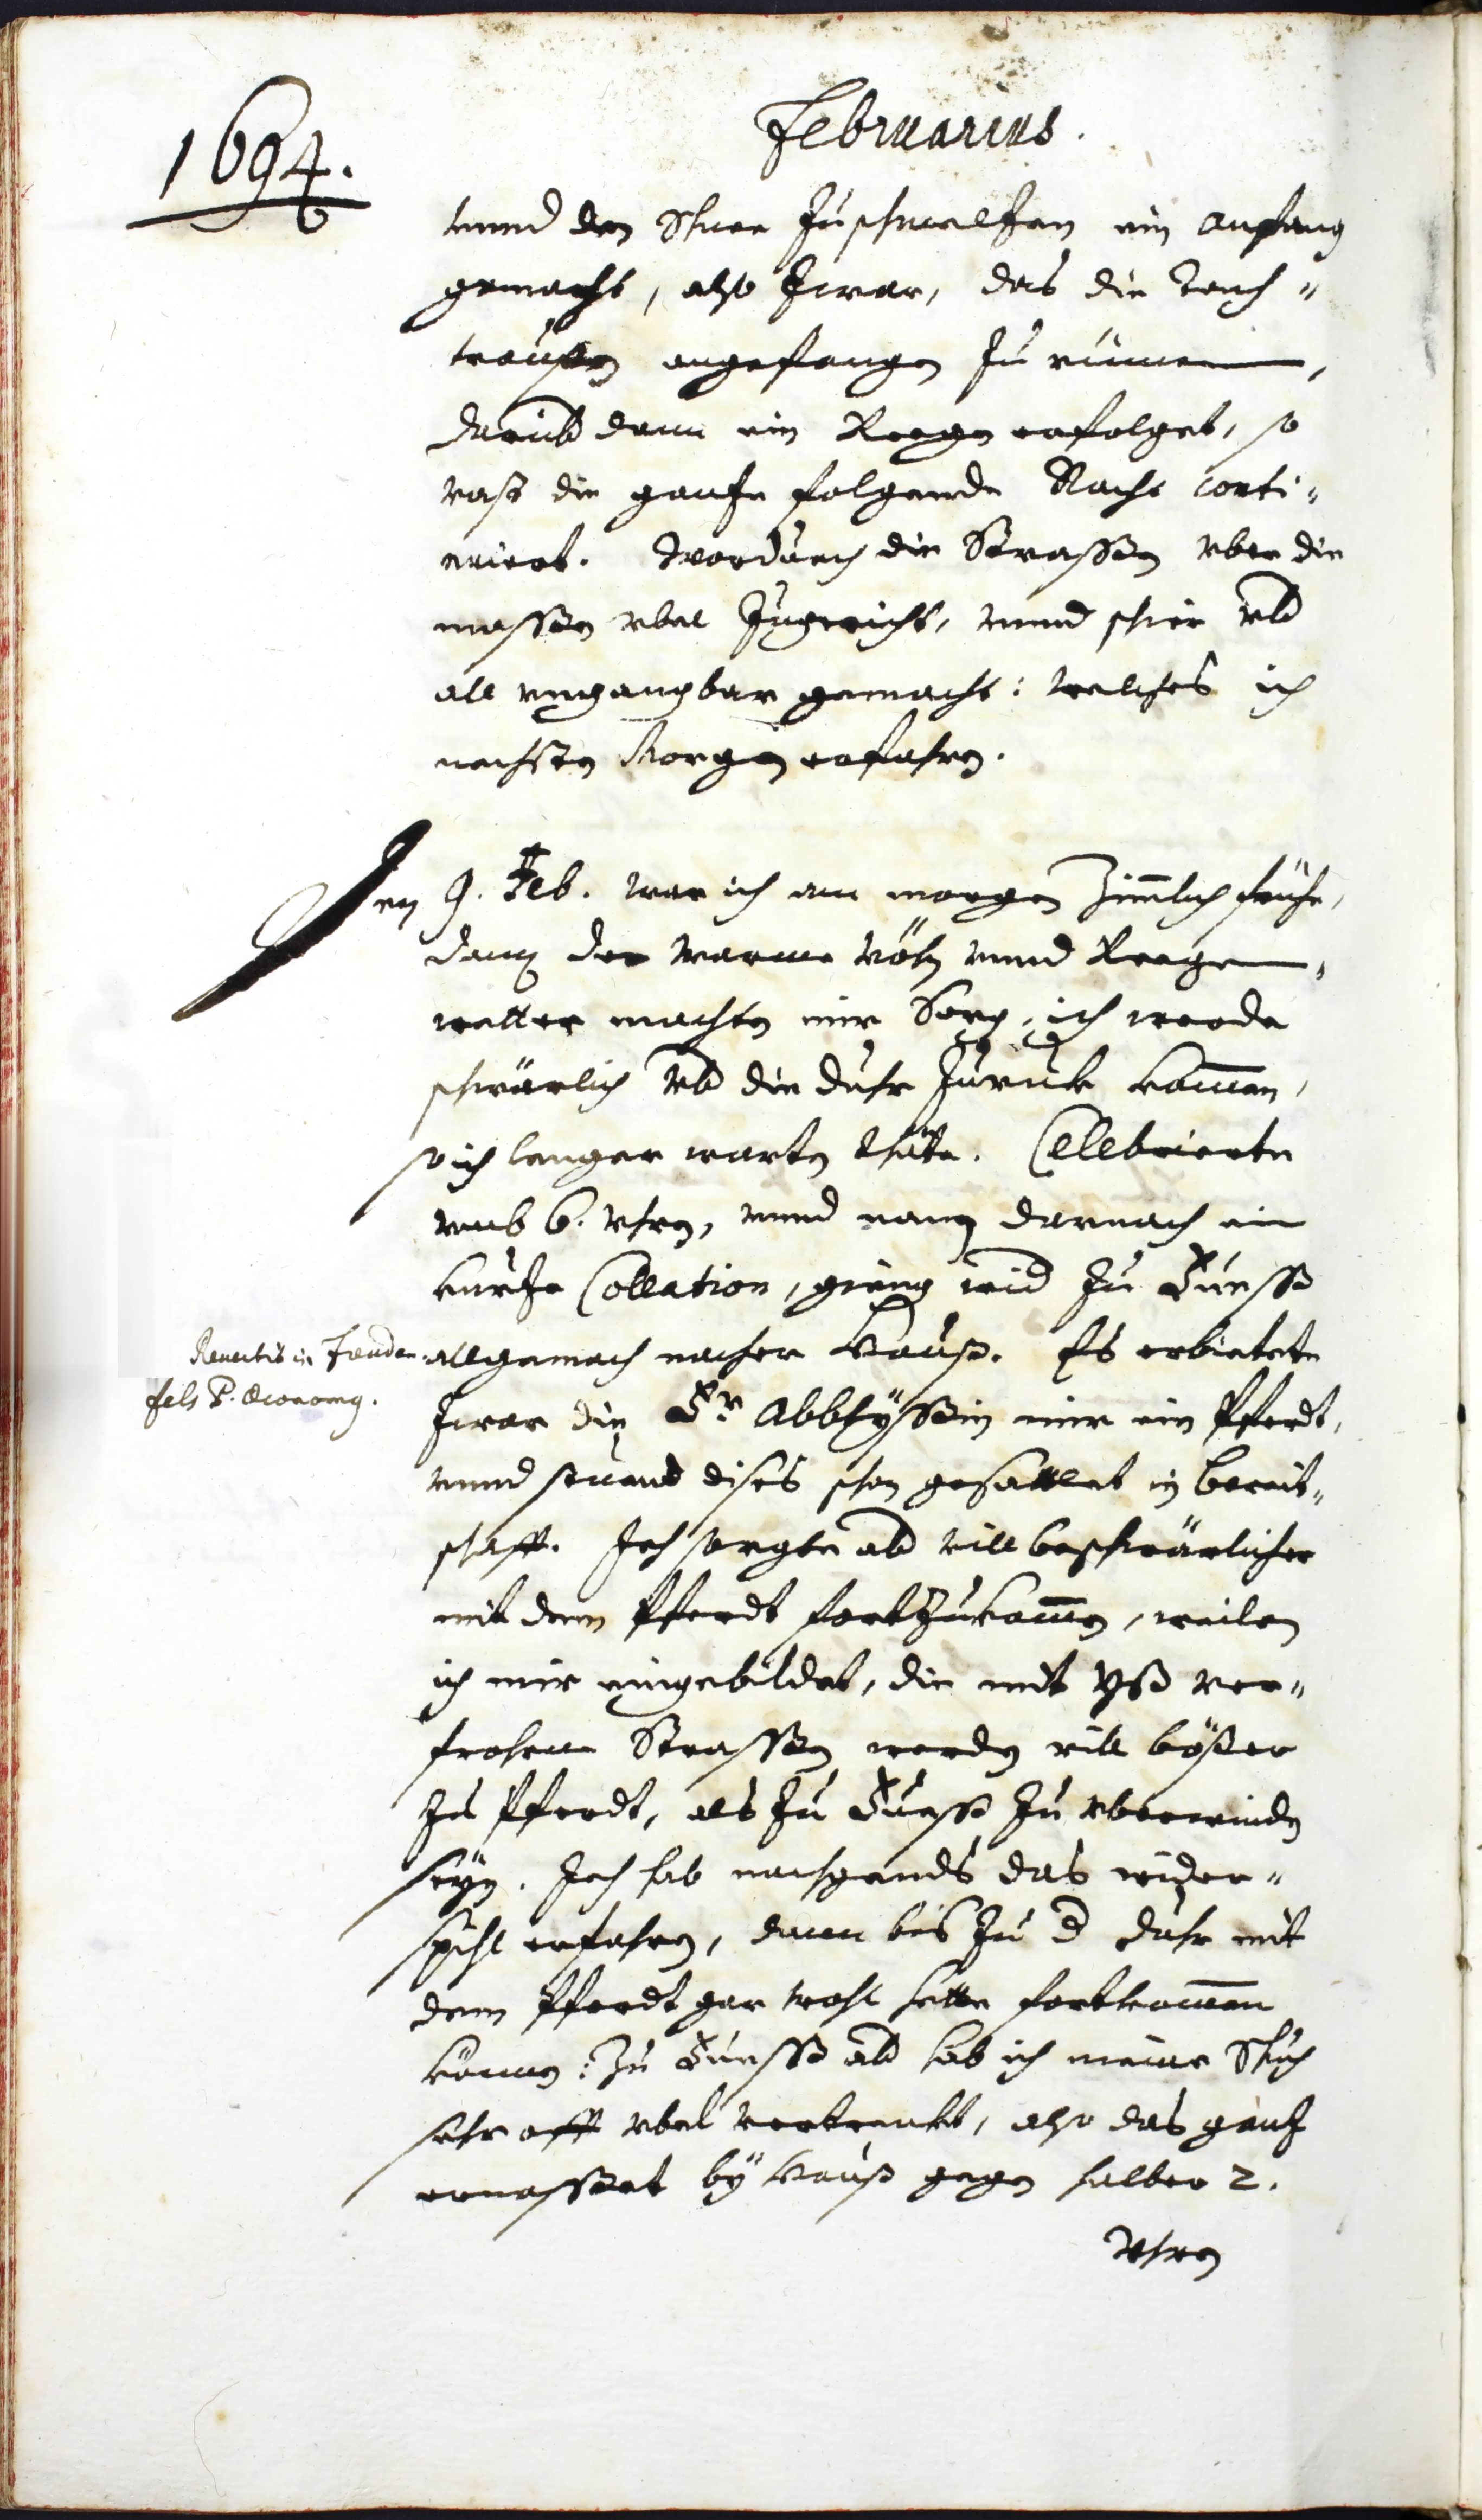 1694.
Februarius.
unnd den Schnee zuschmelzen ein anfang
gemacht, also zwar, das die Tach-
trauffen angefangen zu rünnen,
darüb dann ein Regen erfolget, so
vast die ganze folgende Nacht conti-
nuiert. Wordurch die Strassen vber die
massen vbel zugericht, unnd schier vbd
all vngangbar gemacht: welches ich
nechsten Morgen erfahren.
Den 9. Feb. war ich am morgen zimlich frühe,
dan der warme vöhn unnd Regen-
wetter machten mir Sorg, ich werde
schwärlich vbd die Duhr zuruk kommen,
so ich langer warten thäte. Cellebrierte
umb 6. vhren, unnd nam darnach ein
kurze Collation, gieng wid zu Fuess
allgemach nacher Hauss. Es erbietete
Reuertitur in Sonden-
fels P. Oeconomg.
zwar die Fr. Abbtyssin mir ein Pferdt,
unnd stuend dises schon gesattlet in bereit-
schafft. Ich sorgte abd vill beschwärlicher
mit dem Pferdt fortzukommen, weilen
ich mir eingebildet, die mit Yss ver-
frohrne Strassen werden vill böser
zu Pferdt, als zu Fuess zu vberwinden
seyn. Ich hab nachgends das wider-
spihl erfahren, dann bis zu d Duhr mit
dem Pferdt gar wohl hette fortkommen
können: Zu Fuess abd hab ich meine Schuh
sehr offt vbel vertrenkt, also das ganz
ernasset by Hauss gegen halber 2.
Vhren